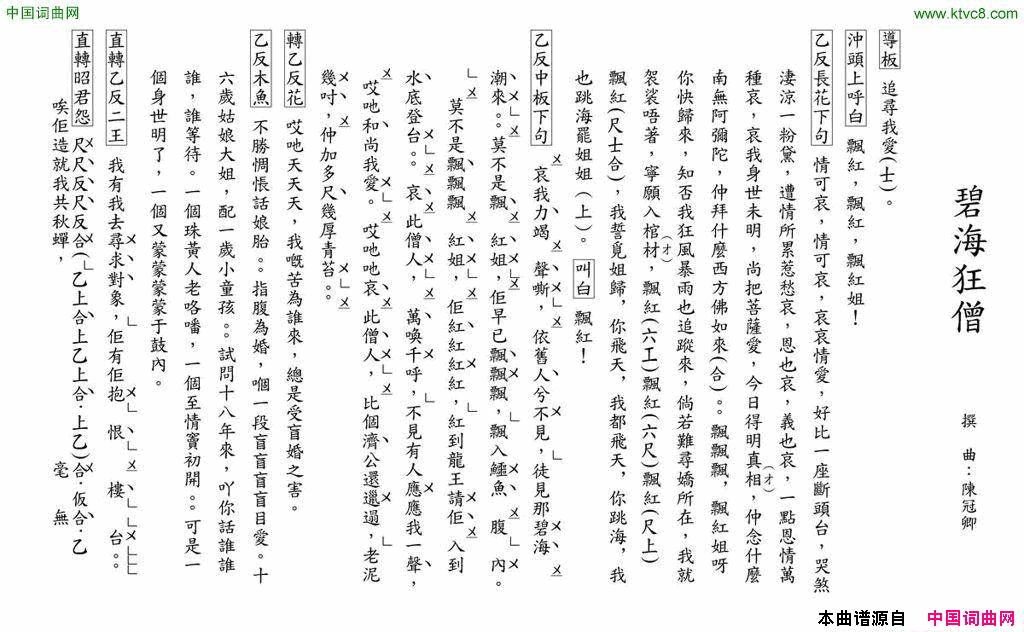 中国词曲网
www.ktvc8.com
碧海狂僧
撰曲:陳冠卿
導板 追尋我愛(士)。
沖頭上呼白 飄紅,飄紅,飄紅姐!
乙反長花下句 情可哀,情可哀,哀哀情愛,好比一座斷頭台,哭煞
淒涼一粉黛,遭情所累惹愁哀,恩也哀,義也哀,一點恩情萬
種哀,哀我身世未明,尚把菩薩愛,今日得明真相,(オ)仲念什麼
南無阿彌陀,仲拜什麼西方佛如來(合)。飄飄飄,飄紅姐呀
你快歸來,知否我狂風暴雨也追蹤來,倘若難尋嬌所在,我就
袈裟唔著,寧願入棺材,(オ)飄紅(六工)飄紅(六尺)飄紅(尺上)
飄紅(尺士合),我誓覓姐歸,你飛天,我都飛天,你跳海,我
也跳海罷姐姐(上)。 叫白 飄紅!
乙反中板下句 哀我力竭聲嘶,依舊人兮不見,徒見那碧海
潮來。。莫不是飄紅姐,佢早已飄飄飄,飄入鱷魚腹內。
莫不是飄飄飄紅姐,佢紅紅紅,紅到龍王請佢入到
水底登台。。哀此僧人,萬喚千呼,不見有人應應我一聲,
哎吔和尚我愛。哎吔吔哀此僧人,比個濟公還邋遢,老泥
幾吋,仲加多尺幾厚青苔。。
轉乙反花 哎吔天天天,我嘅苦為誰來,總是受盲婚之害。
乙反木魚 不勝惆悵話娘胎。。指腹為婚,嗰一段盲盲盲盲目愛。十
六歲姑娘大姐,配一歲小童孩。。試問十八年來,吖你話誰誰
誰,誰等待。一個珠黃人老咯噃,一個至情竇初開。。可是一
個身世明了,一個又蒙蒙蒙蒙于鼓內。
直轉乙反二王 我有我去尋求對象,佢有佢抱恨樓台。。
直轉昭君怨 尺尺反尺反合(乙上合上乙上乙上合·上乙)合·仮合·乙
唉佢造就我共秋蟬,毫無
本曲谱源自 中国词曲网